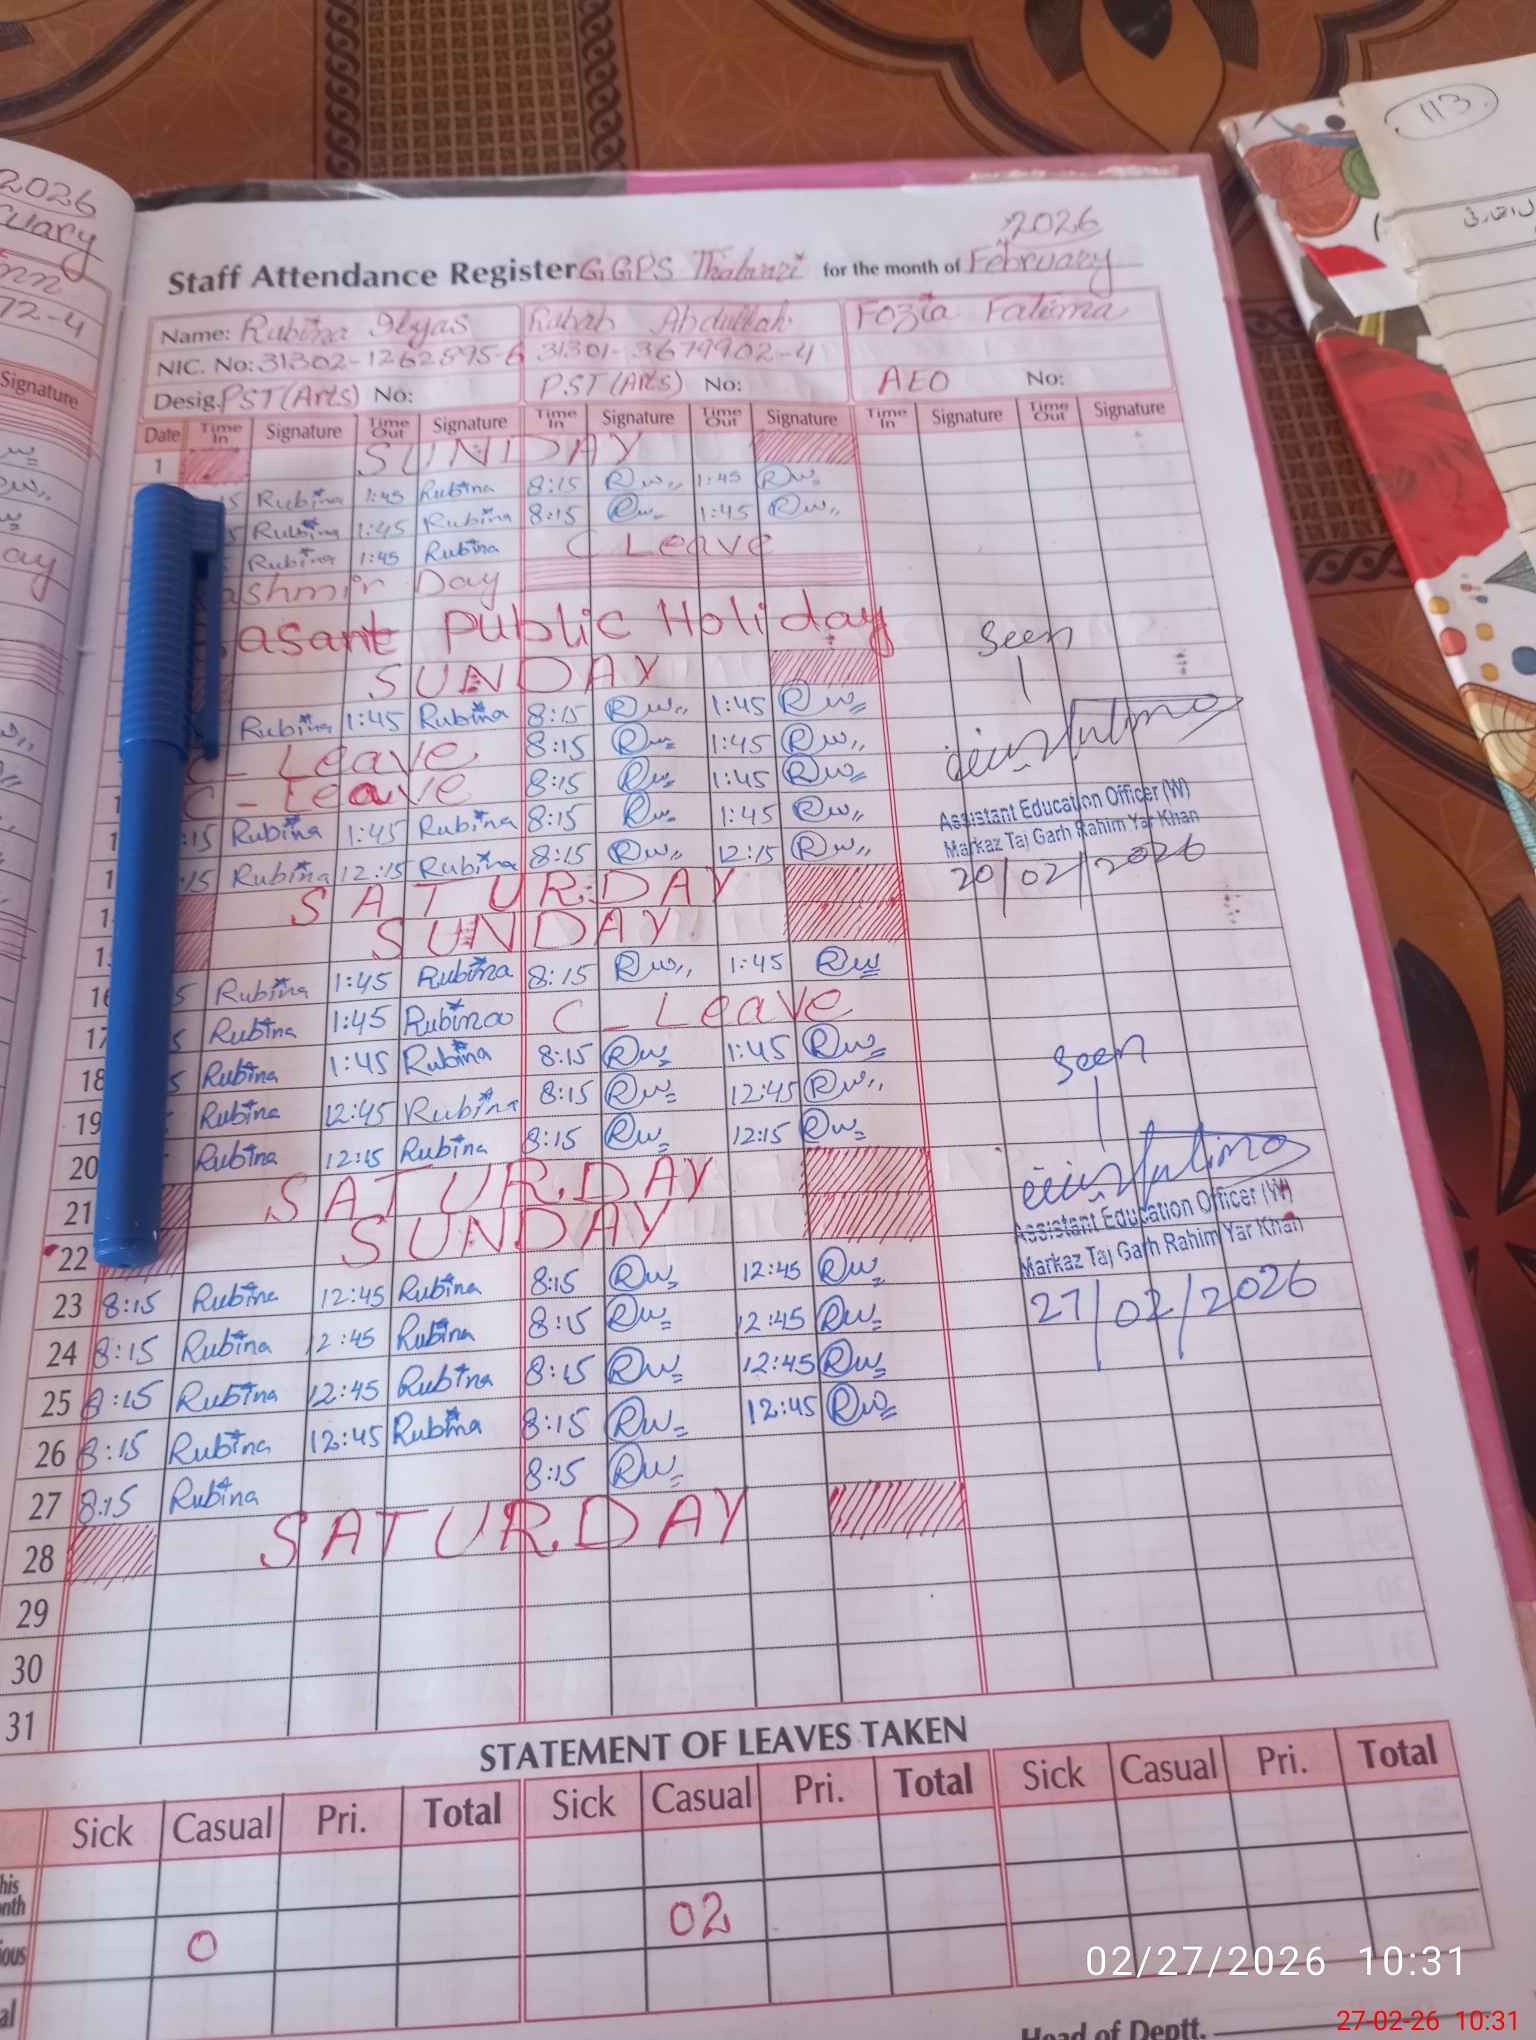 2026
113
Staff Attendance Register G.GPS Thalwari for the month of February
2026
Name: Rubina Ilyas Rubab Abdullah Fozia Fatima
NIC. No: 31302-1262895-6 31301-3679902-4
72-4
Desig. PST (Arts) No: PST (Arts) No: AEO No:
Signature
Date Time In Signature Time Out Signature Time In Signature Time Out Signature Time In Signature Time Out Signature
1 SUNDAY
Rubina 1:45 Rubina 8:15 Rw 1:45 Rw
Rubina 1:45 Rubina 8:15 Rw 1:45 Rw
Rubina 1:45 Rubina C Leave
ashmir Day
asant Public Holiday
Seen
SUNDAY
Rubina 1:45 Rubina 8:15 Rw 1:45 Rw
C - Leave 8:15 Rw 1:45 Rw
C - Leave 8:15 Rw 1:45 Rw
:15 Rubina 1:45 Rubina 8:15 Rw 1:45 Rw
15 Rubina 12:15 Rubina 8:15 Rw 12:15 Rw
Assistant Education Officer (W)
Markaz Taj Garh Rahim Yar Khan
20/02/2026
SATURDAY
SUNDAY
16 Rubina 1:45 Rubina 8:15 Rw 1:45 Rw
17 Rubina 1:45 Rubina C - Leave
18 Rubina 1:45 Rubina 8:15 Rw 1:45 Rw
19 Rubina 12:45 Rubina 8:15 Rw 12:45 Rw
20 Rubina 12:15 Rubina 8:15 Rw 12:15 Rw
Seen
21 SATURDAY
22 SUNDAY
Assistant Education Officer (W)
Markaz Taj Garh Rahim Yar Khan
27/02/2026
23 8:15 Rubina 12:45 Rubina 8:15 Rw 12:45 Rw
24 8:15 Rubina 12:45 Rubina 8:15 Rw 12:45 Rw
25 8:15 Rubina 12:45 Rubina 8:15 Rw 12:45 Rw
26 8:15 Rubina 12:45 Rubina 8:15 Rw 12:45 Rw
27 8:15 Rubina 8:15 Rw
28 SATURDAY
29
30
31
STATEMENT OF LEAVES TAKEN
Sick Casual Pri. Total Sick Casual Pri. Total Sick Casual Pri. Total
0 02
02/27/2026 10:31
27-02-26 10:31
Head of Deptt.